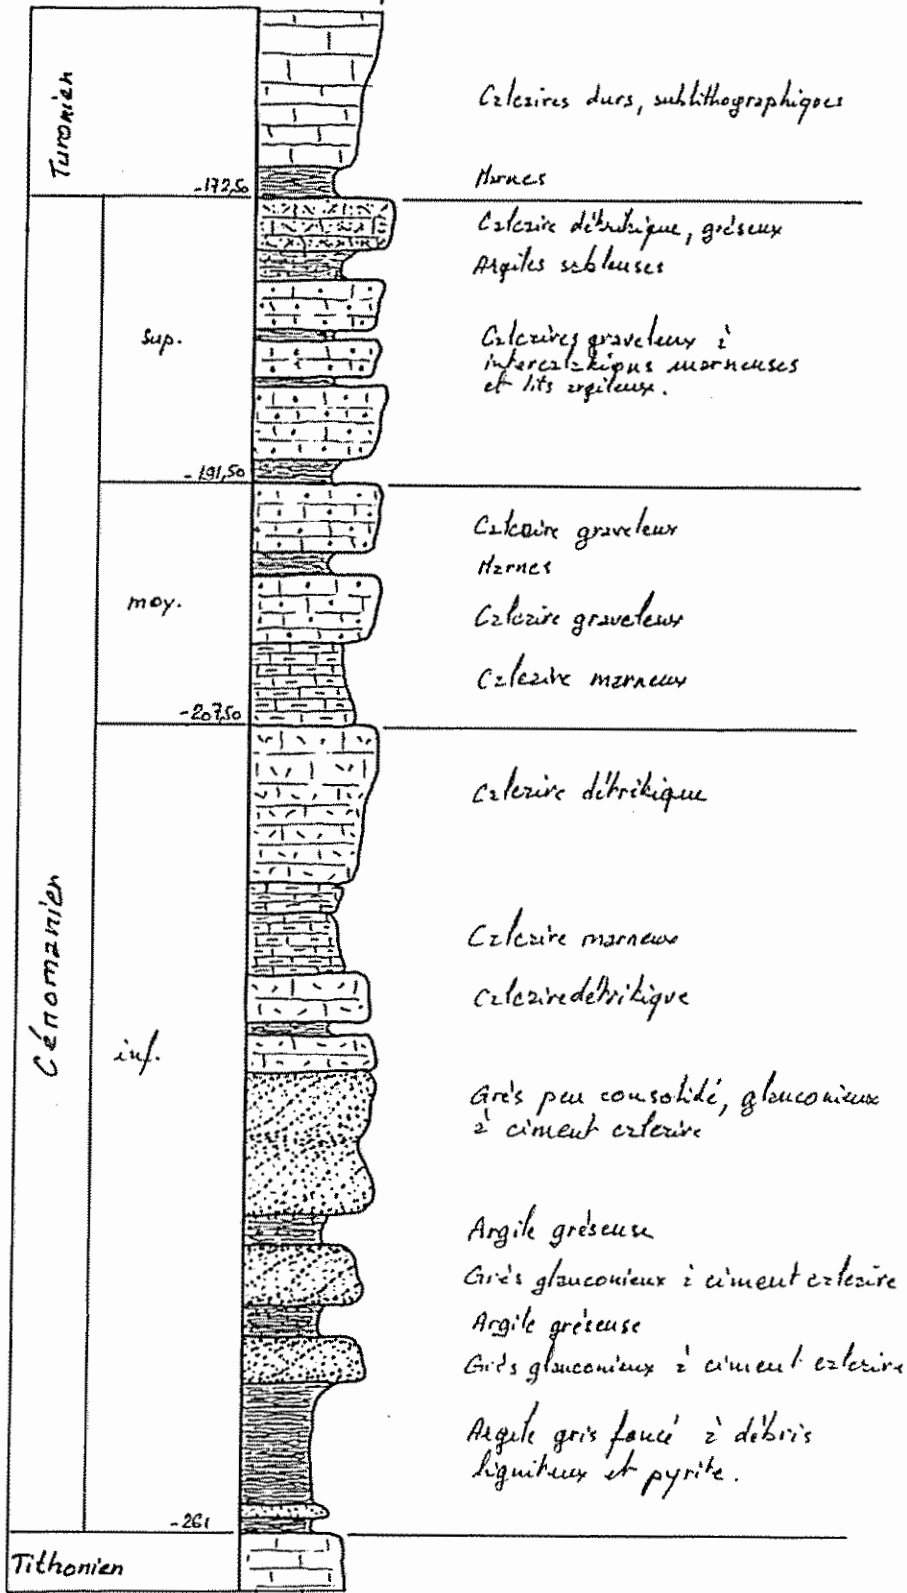 Turonien
Calcaires durs, sublithographiques
Marnes
-172,50
Calcaire détritique, gréseux
Argiles sableuses
sup.
Calcaires graveleux à
intercalations marneuses
et lits argileux.
-191,50
Calcaire graveleux
Marnes
moy.
Calcaire graveleux
Calcaire marneux
-207,50
Calcaire détritique
Cénomanien
Calcaire marneux
Calcaire détritique
inf.
Grès peu consolidé, glauconieux
à ciment calcaire
Argile gréseuse
Grès glauconieux à ciment calcaire
Argile gréseuse
Grès glauconieux à ciment calcaire
Argile gris foncé à débris
ligniteux et pyrite.
-261
Tithonien